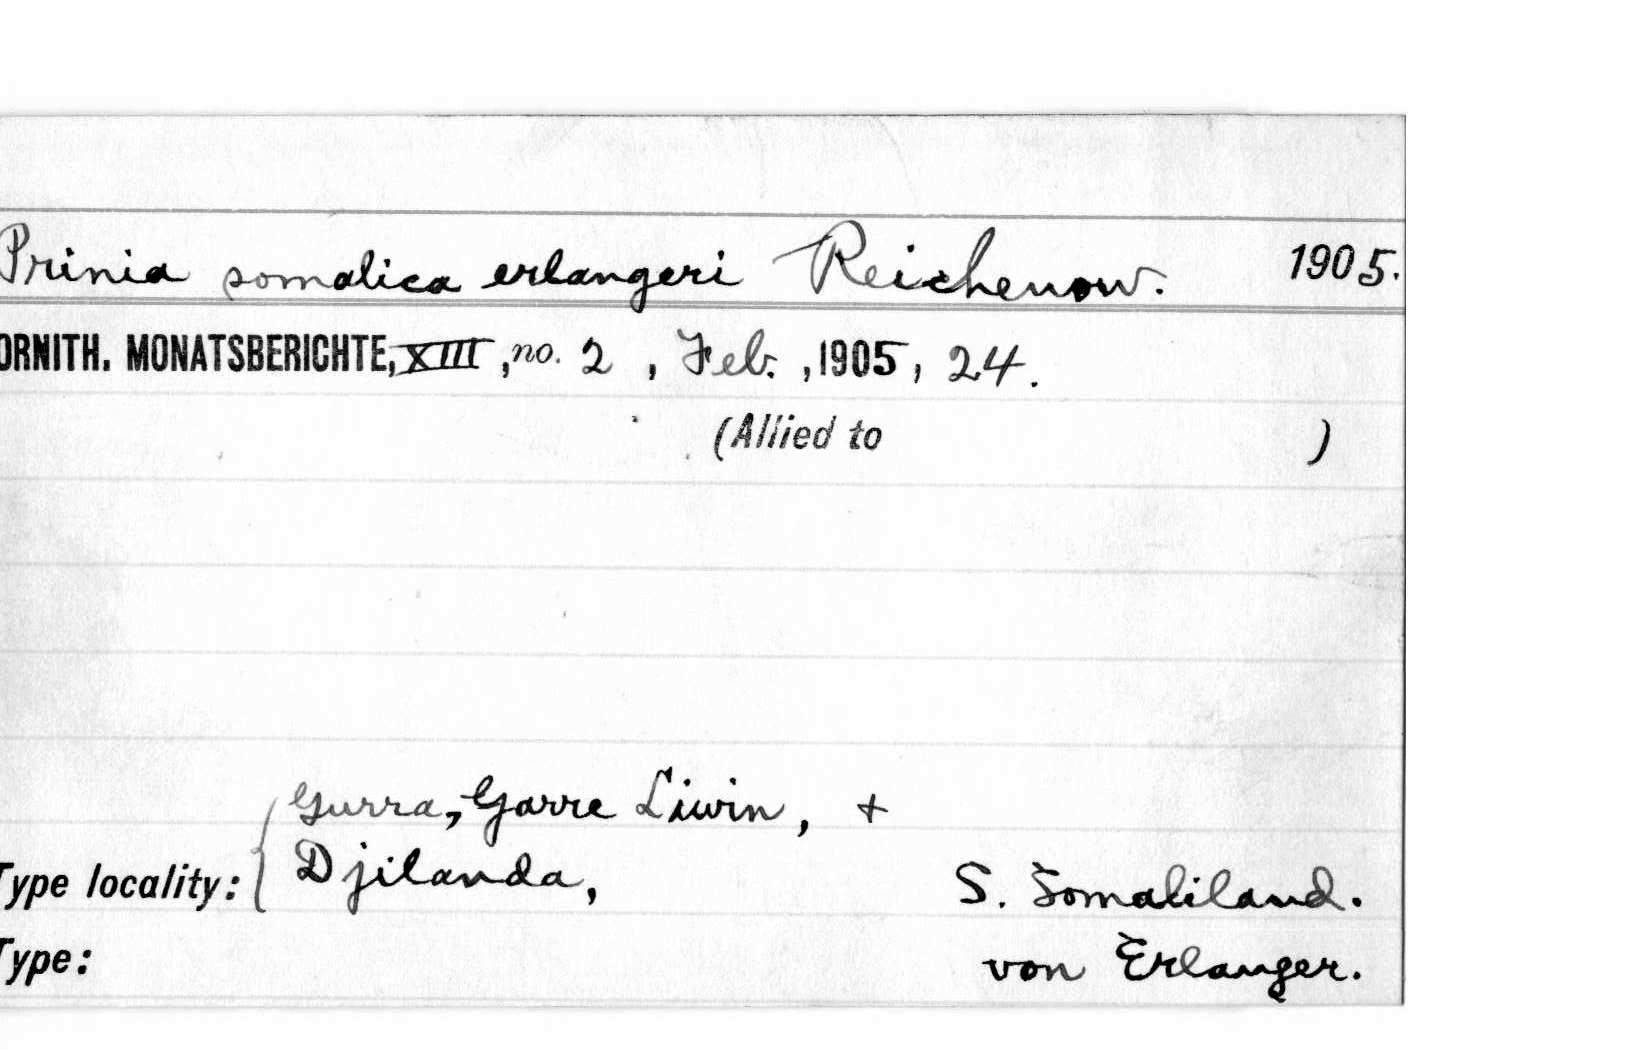 Prinia somalica erlangeri Reichenow. 1905.
ORNITH. MONATSBERICHTE, XIII, no. 2, Feb., 1905, 24.
(Allied to )
Gurra, Garre Liwin, +
Type locality: { Djilanda, S. Somaliland.
Type: von Erlanger.